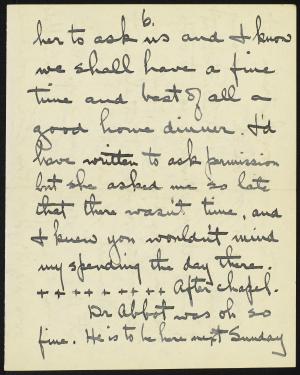 6.
her to ask us and I know
we shall have a fine
time and best of all a
good home dinner. I'd
have written to ask permission
but she asked me so late
that there wasn't time, and
I knew you wouldn't mind
my spending the day there.
+ + + + + + + + After chapel.
Dr Abbot was oh so
fine. He is to be here next Sunday